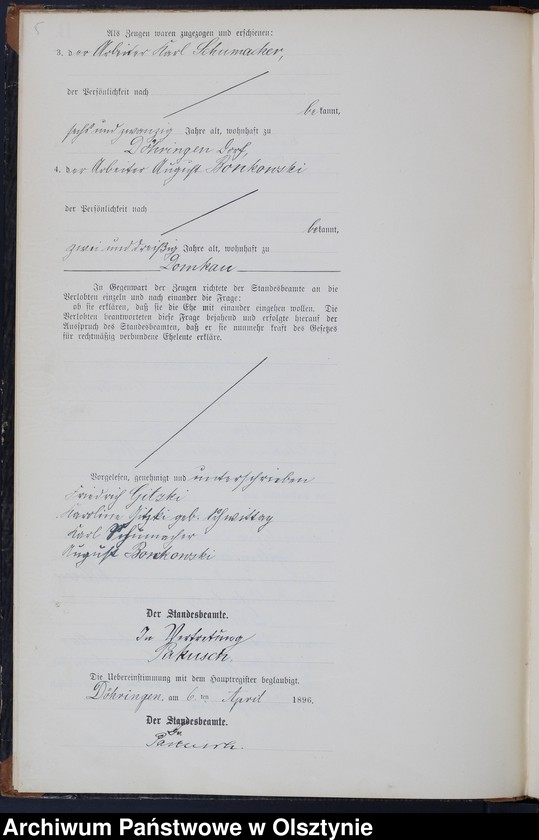 Als Zeugen waren zugezogen und erschienen:
3. der Arbeiter Karl Schumacher,
der Persönlichkeit nach
bekannt,
sechs und zwanzig Jahre alt, wohnhaft zu
Döhringen Dorf,
4. der Arbeiter August Bonkowski
der Persönlichkeit nach
bekannt,
zwei und dreißig Jahre alt, wohnhaft zu
Domkau
In Gegenwart der Zeugen richtete der Standesbeamte an die
Verlobten einzeln und nach einander die Frage:
ob sie erklären, daß sie die Ehe mit einander eingehen wollen. Die
Verlobten beantworteten diese Frage bejahend und erfolgte hierauf der
Ausspruch des Standesbeamten, daß er sie nunmehr kraft des Gesetzes
für rechtmäßig verbundene Eheleute erkläre.
Vorgelesen, genehmigt und unterschrieben
Friedrich Gitzki
Karoline Gitzki geb. Schwittay
Karl Schumacher
August Bonkowski
Der Standesbeamte.
In Vertretung
Pakusch.
Die Uebereinstimmung mit dem Hauptregister beglaubigt.
Döhringen, am 6ten April 1896.
Der Standesbeamte.
Pakusch.
Archiwum Państwowe w Olsztynie